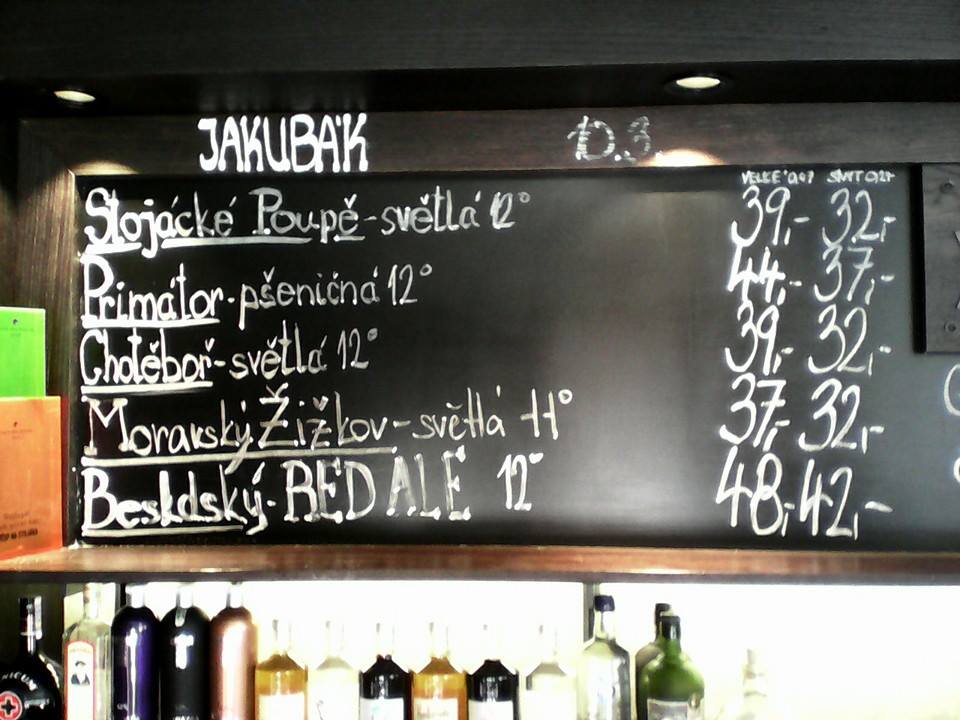 JAKUBÁK 10.3.
Stojácké Poupě - světlá 12° 39,- 32,-
Primátor - pšeničná 12° 44,- 37,-
Chotěboř - světlá 12° 39,- 32,-
Moravský Žižkov - světlá 11° 37,- 32,-
Beskdský - RED ALE 12° 48,- 42,-
NICUM